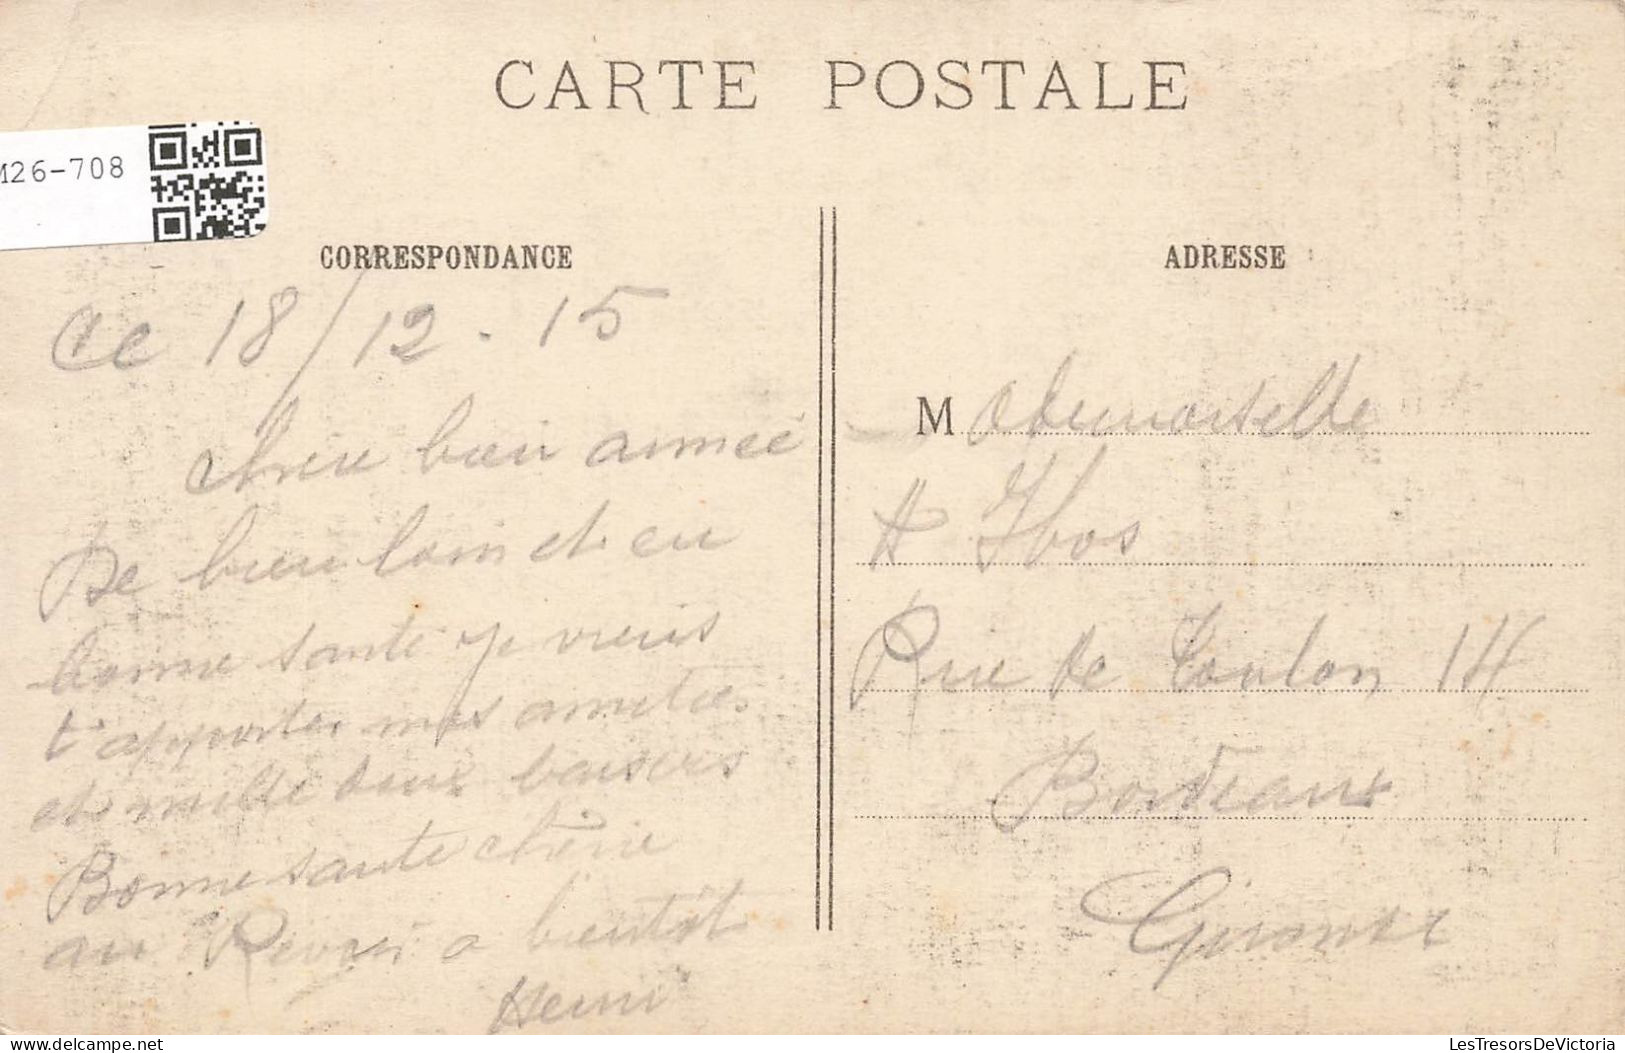 CARTE POSTALE
M26-708
CORRESPONDANCE
Ce 18/12 - 15
Chère bien aimée
De bien loin et en
bonne santé je viens
t'apporter mes amitiés
et mille doux baisers
Bonne santé chérie
au Revoir a bientôt
Henri
ADRESSE
Mademoiselle
A Ibos
Rue de Toulon 14
Bordeaux
Gironde
delcampe.net
LesTresorsDeVictoria